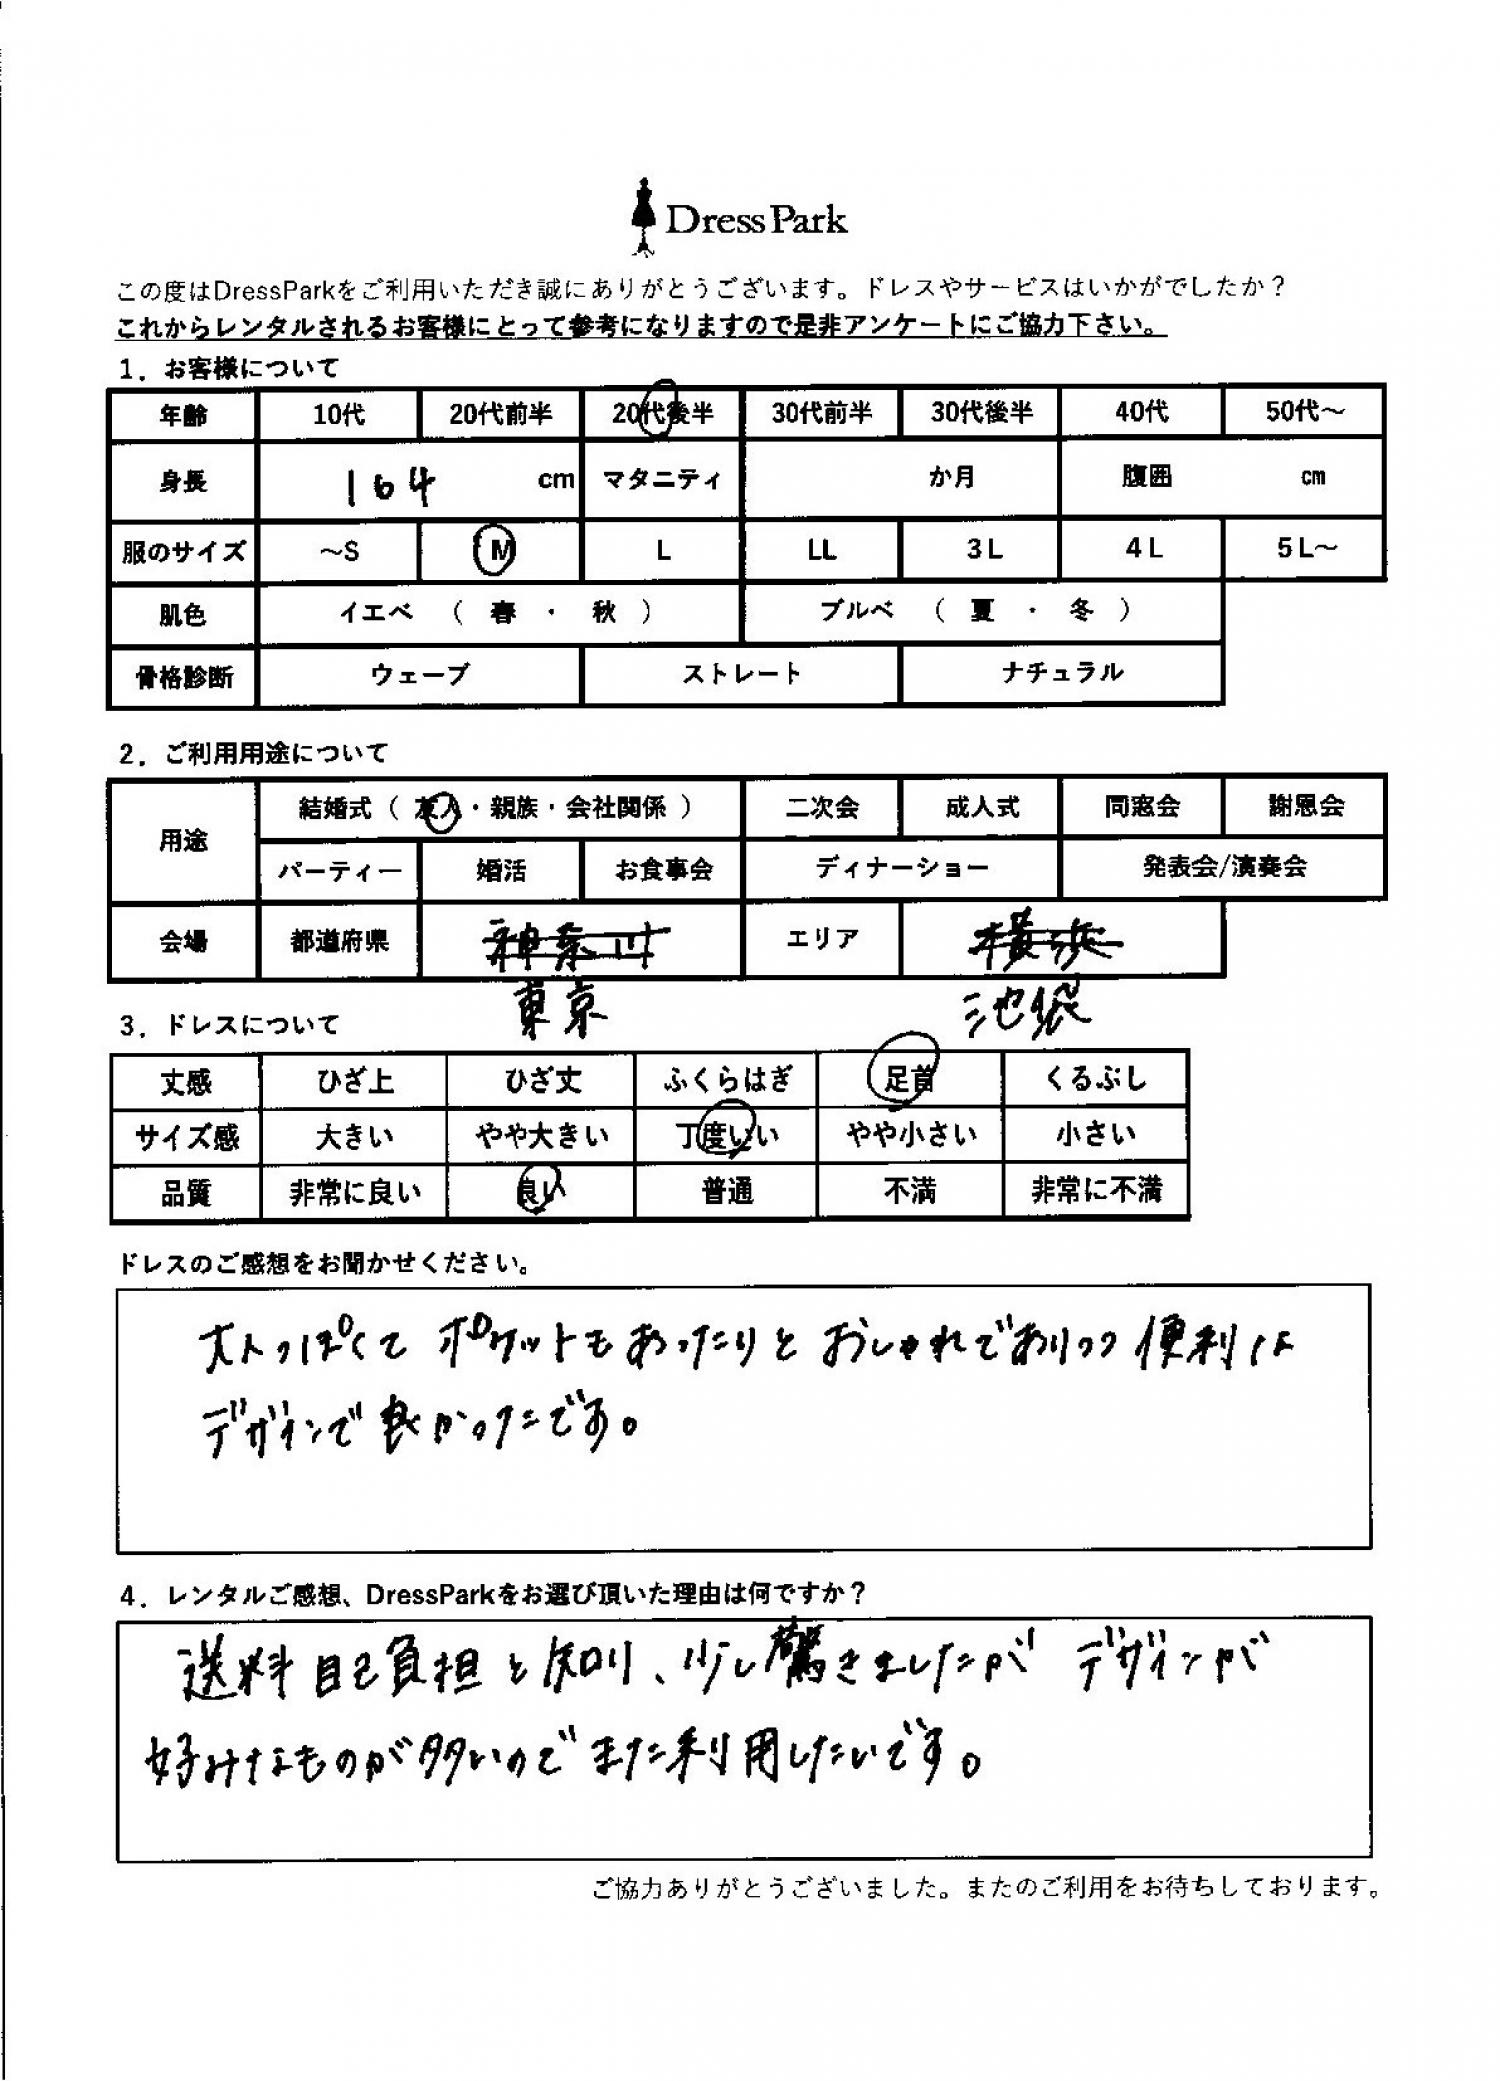 Dress Park
この度はDressParkをご利用いただき誠にありがとうございます。ドレスやサービスはいかがでしたか？
これからレンタルされるお客様にとって参考になりますので是非アンケートにご協力下さい。
1．お客様について
年齢 10代 20代前半 20代後半 30代前半 30代後半 40代 50代～
身長 164 cm マタニティ か月 腹囲 cm
服のサイズ ～S M L LL 3L 4L 5L～
肌色 イエベ （ 春 ・ 秋 ） ブルベ （ 夏 ・ 冬 ）
骨格診断 ウェーブ ストレート ナチュラル
2．ご利用用途について
用途 結婚式（ 友人・親族・会社関係 ） 二次会 成人式 同窓会 謝恩会
パーティー 婚活 お食事会 ディナーショー 発表会/演奏会
会場 都道府県 神奈川 エリア 横浜
東京 池袋
3．ドレスについて
丈感 ひざ上 ひざ丈 ふくらはぎ 足首 くるぶし
サイズ感 大きい やや大きい 丁度いい やや小さい 小さい
品質 非常に良い 良い 普通 不満 非常に不満
ドレスのご感想をお聞かせください。
大人っぽくて ポケットもあったりと おしゃれでありつつ 便利な
デザインで良かったです。
4．レンタルご感想、DressParkをお選び頂いた理由は何ですか？
送料自己負担と知り、少し驚きましたが デザインが
好みなものが多いのでまた利用したいです。
ご協力ありがとうございました。またのご利用をお待ちしております。